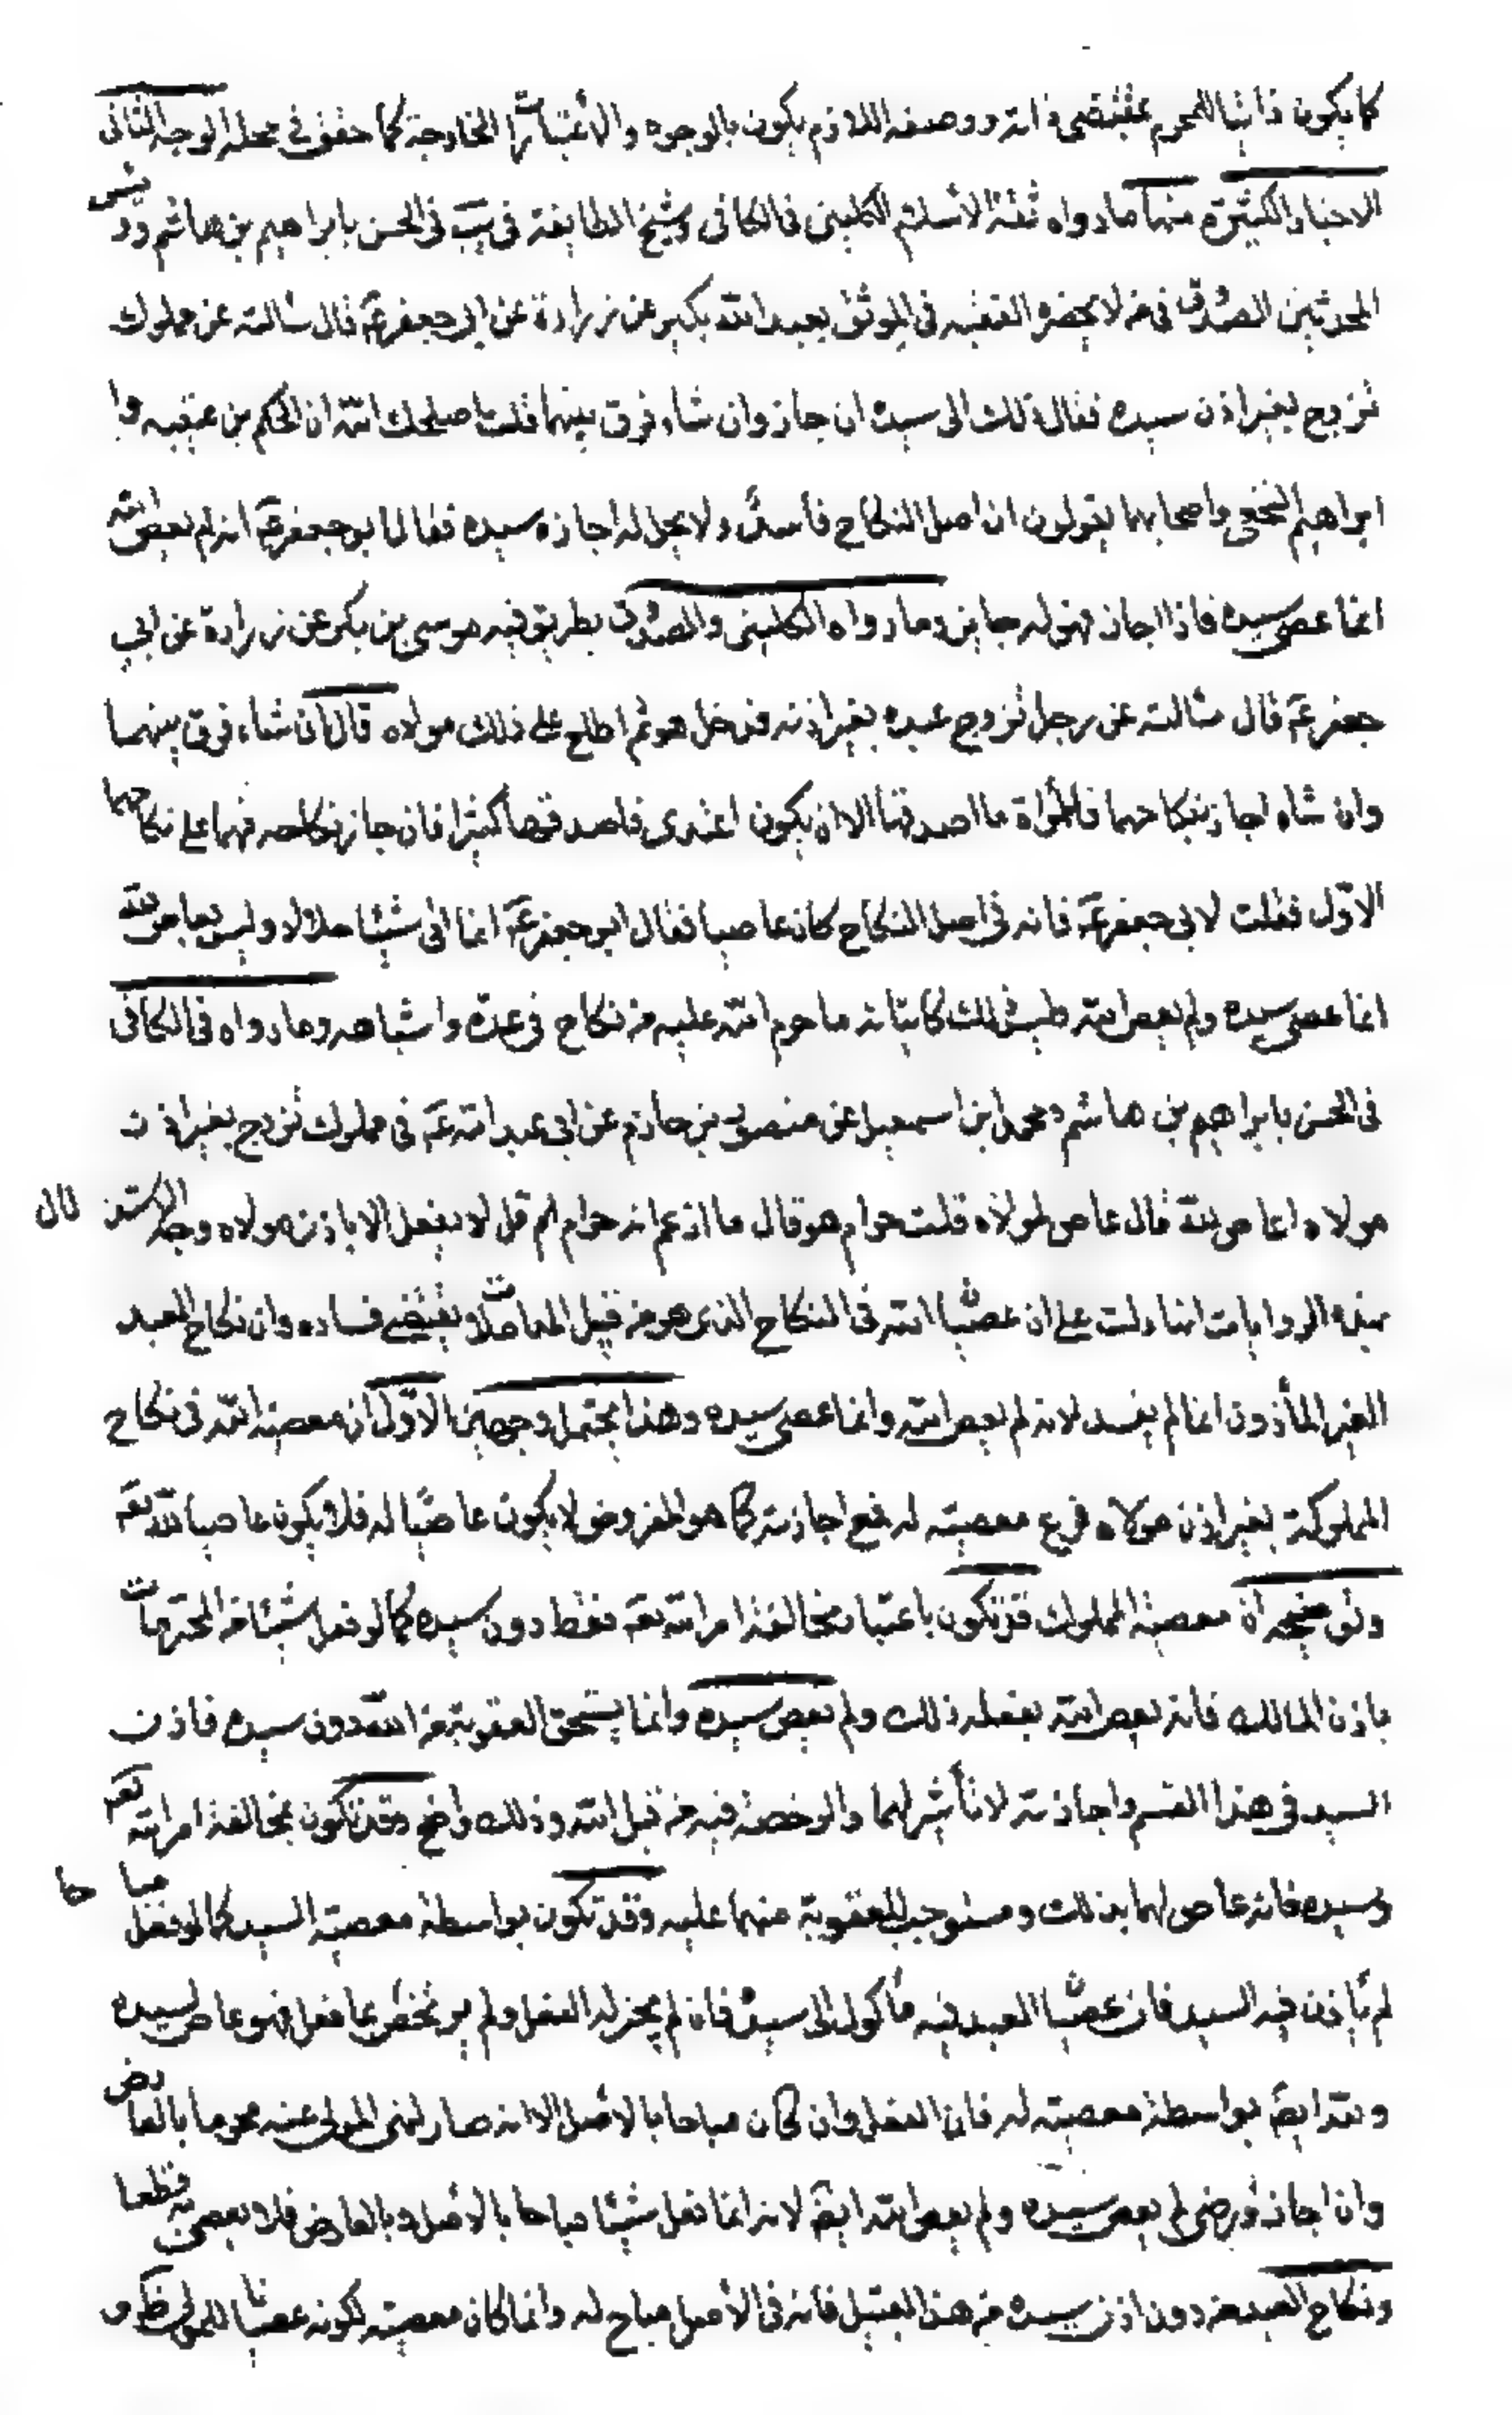 كما يكون ذاتيا للمحرم بمقتضى ذاته ووصفه اللازم يكون بالوجوه والاعتبارات الخارجة كما حقق في محله الوجه الثاني
الاخبار الكثيرة منها ما رواه ثقة الاسلام الكليني في الكافي وشيخ الطايفة في يب في الحسن بابراهيم بن هاشم ورئيس
المحدثين الصدوق في من لا يحضره الفقيه في الموثق بعبد الله بكير عن زرارة عن ابي جعفر ع قال سالته عن مملوك
تزوج بغير اذن سيده فقال ذلك الى سيده ان جاز وان شاء فرق بينهما قلت اصلحك الله ان الحكم بن عتيبه وا
ابراهيم النخعي واصحابهما يقولون ان اصل النكاح فاسد ولا يحل له اجازه سيده فقال ابو جعفر ع انه لم يعص الله
انما عصى سيده فاذا اجاز فهو له جايز وما رواه الكليني والصدوق بطريق فيه موسى بن بكر عن زرارة عن ابي
جعفر ع قال سالته عن رجل تزوج عبده بغير اذنه فدخل هو ثم اطلع على ذلك مولاه قال ان شاء فرق بينهما
وان شاء اجاز نكاحهما فللمراة ما اصدقها الا ان يكون اعتدى فاصدقها كثيرا فان جاز نكاحه فهما على نكاحهما
الاول فقلت لابي جعفر ع فانه في اصل النكاح كان عاصيا فقال ابو جعفر ع انما اتى شيئا حلالا وليس بعاص لله
انما عصى سيده ولم يعص الله ان ذلك كاتيانه ما حرم الله عليه من نكاح في عدة واشباهه وما رواه في الكافي
في الحسن بابراهيم بن هاشم ومحمد ابن اسمعيل عن منصور بن حازم عن ابي عبد الله ع في مملوك تزوج بغير اذن
مولاه اعاص لله قال عاص لمولاه قلت حرام هو قال ما ازعم انه حرام ثم قل له لا يفعل الا باذن مولاه وجه الاستدلال
بهذه الروايات انها دلت على ان عصيان الله في النكاح الذي هو من قبيل المعاملات يقتضي فساده وان نكاح العبد
الغير المأذون انما لم يفسد لانه لم يعص الله وانما عصى سيده وهذا يحتمل وجهين الاول ان معصية الله في نكاح
المملوكة بغير اذن مولاه فرع معصيته له فمع اجازته كما هو المفروض لا يكون عاصيا له فلا يكون عاصيا لله تع
وتوضيحه ان معصية المملوك قد تكون باعتبار مخالفة امر الله تع فقط دون سيده كما لو فعل شيئا من المحرمات
باذن المالك فانه يعص الله بفعله ذلك ولم يعص سيده وانما يستحق العقوبة من الله دون سيده فاذن
السيد في هذا القسم واجازته لا تأثير لهما والرخصة فيه من قبل الله وذلك واضح وقد تكون بمخالفة امر الله تع
وسيده فانه عاص لهما بذلك ومستوجب للعقوبة منهما عليه وقد تكون بواسطة معصية السيد كما لو فعل مباحا
لم يأذن فيه السيد فان عصيان العبد فيه مأكول الى سيده فان لم يجز له الفعل ولم يرخص بما فعل فهو عاص لسيده
ولله ايضا بواسطة معصيته له فان الفعل وان كان مباحا بالاصل الا انه صار لنهي المولى عنه محرما بالعارض
وان اجاز ورضى لم يعص سيده ولم يعص الله ايضا لانه انما فعل شيئا مباحا بالاصل وبالعارض فلا يعصى به قطعا
ونكاح العبد من دون اذن سيده من هذا القبيل فانه في الاصل مباح له وانما كان معصية لكونه عصيانا للمولى